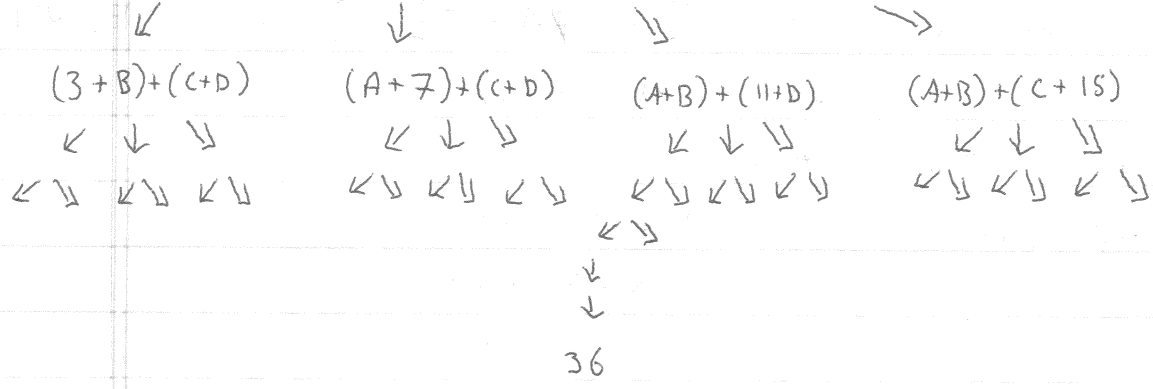 (3+B)+(C+D) (A+7)+(C+D) (A+B)+(11+D) (A+B)+(C+15)
36